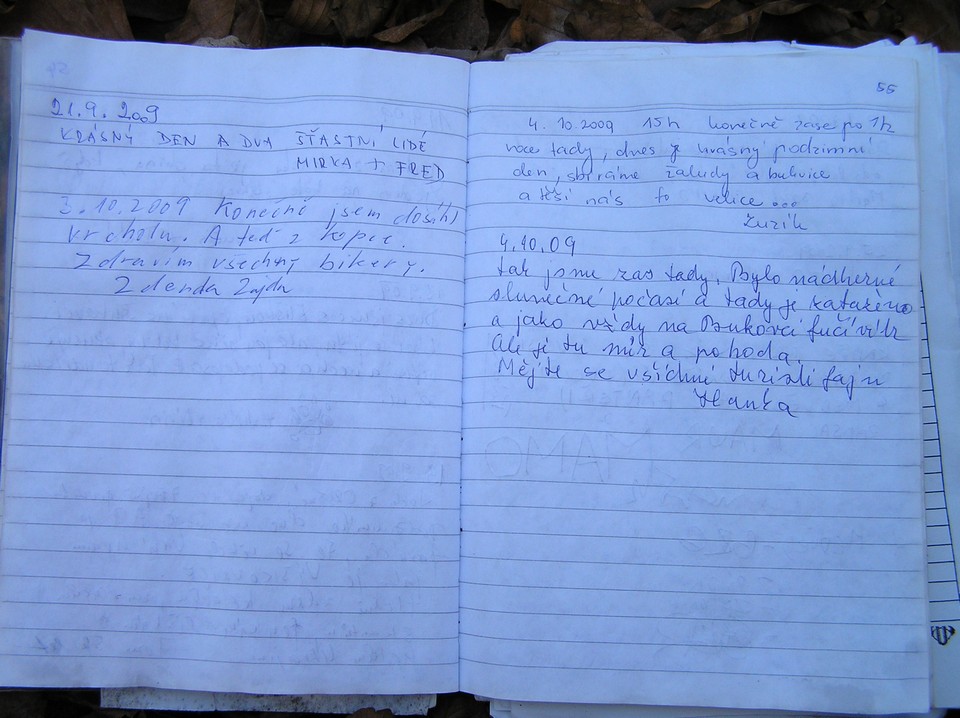 21.9. 2009
KRÁSNÝ DEN A DVA ŠŤASTNÍ LIDÉ
MIRKA + FRED
3.10.2009 Konečně jsem dosáhl
vrcholu. A teď z kopce.
Zdravím všechny bikery.
Zdenda Zajda
55
4. 10.2009 15h konečně zase po
roce tady, dnes je krásný podzimní
den, sbíráme žaludy a bukvice
a těší nás to velice...
Žuzik
4.10.09
tak jsme zas tady. Bylo nádherné
slunečné počasí a tady je zataženo
a jako vždy na Bukovci fučí vítr
Ale je tu mír a pohoda.
Mějte se všichni turisti fajn
Hanka